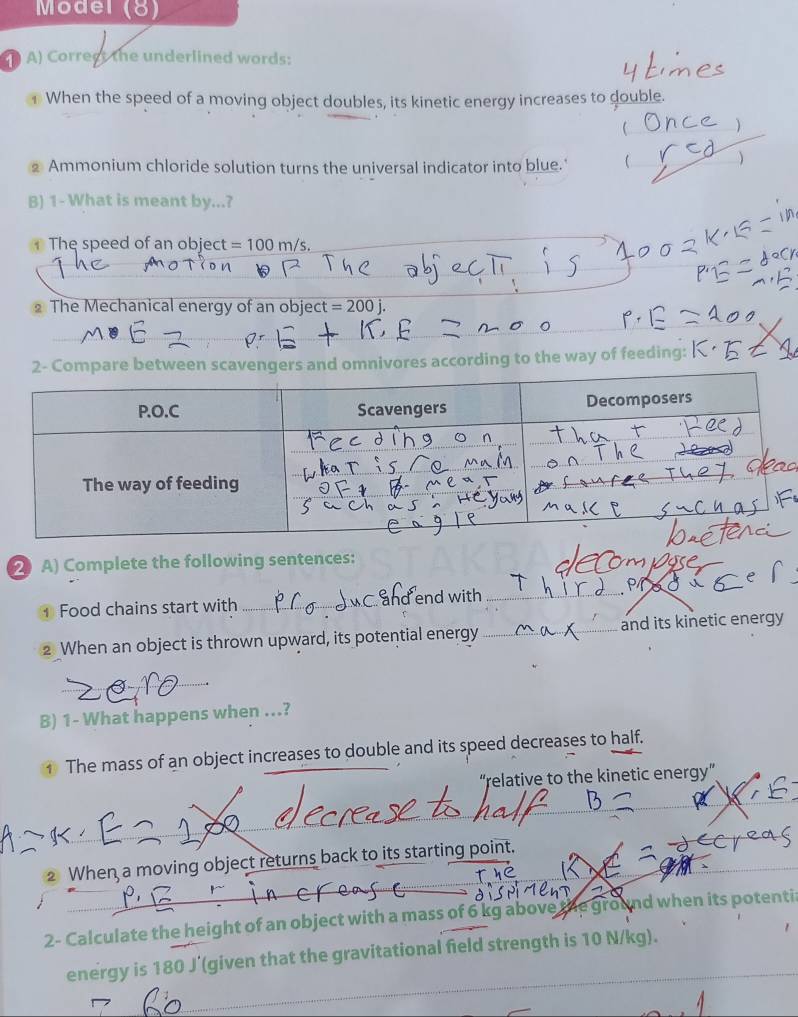 Model (8)
1 A) Correct the underlined words:
4 times
1 When the speed of a moving object doubles, its kinetic energy increases to double.
( Once )
2 Ammonium chloride solution turns the universal indicator into blue.
( red )
B) 1- What is meant by...?
1 The speed of an object = 100 m/s.
The motion of The object is 100 = K.E = in
P.E = decr
m.E
2 The Mechanical energy of an object = 200 j.
M.E = P.E + K.E = 200 P.E = 100
2- Compare between scavengers and omnivores according to the way of feeding: K.E =
P.O.C Scavengers Decomposers
The way of feeding
Feeding on
what is remain
OF meat
such as
eagle
that Feed
on The dead
source They
make such as
bacteria
2 A) Complete the following sentences:
decomposer
1 Food chains start with producer and end with Third producer
2 When an object is thrown upward, its potential energy max and its kinetic energy
zero
B) 1- What happens when ...?
1 The mass of an object increases to double and its speed decreases to half.
"relative to the kinetic energy"
A = K.E = 100 decrease to half B = K.E =
2 When a moving object returns back to its starting point.
The K.E = decreas
P.E = increase
2- Calculate the height of an object with a mass of 6 kg above the ground when its potentia
energy is 180 J (given that the gravitational field strength is 10 N/kg).
= 60